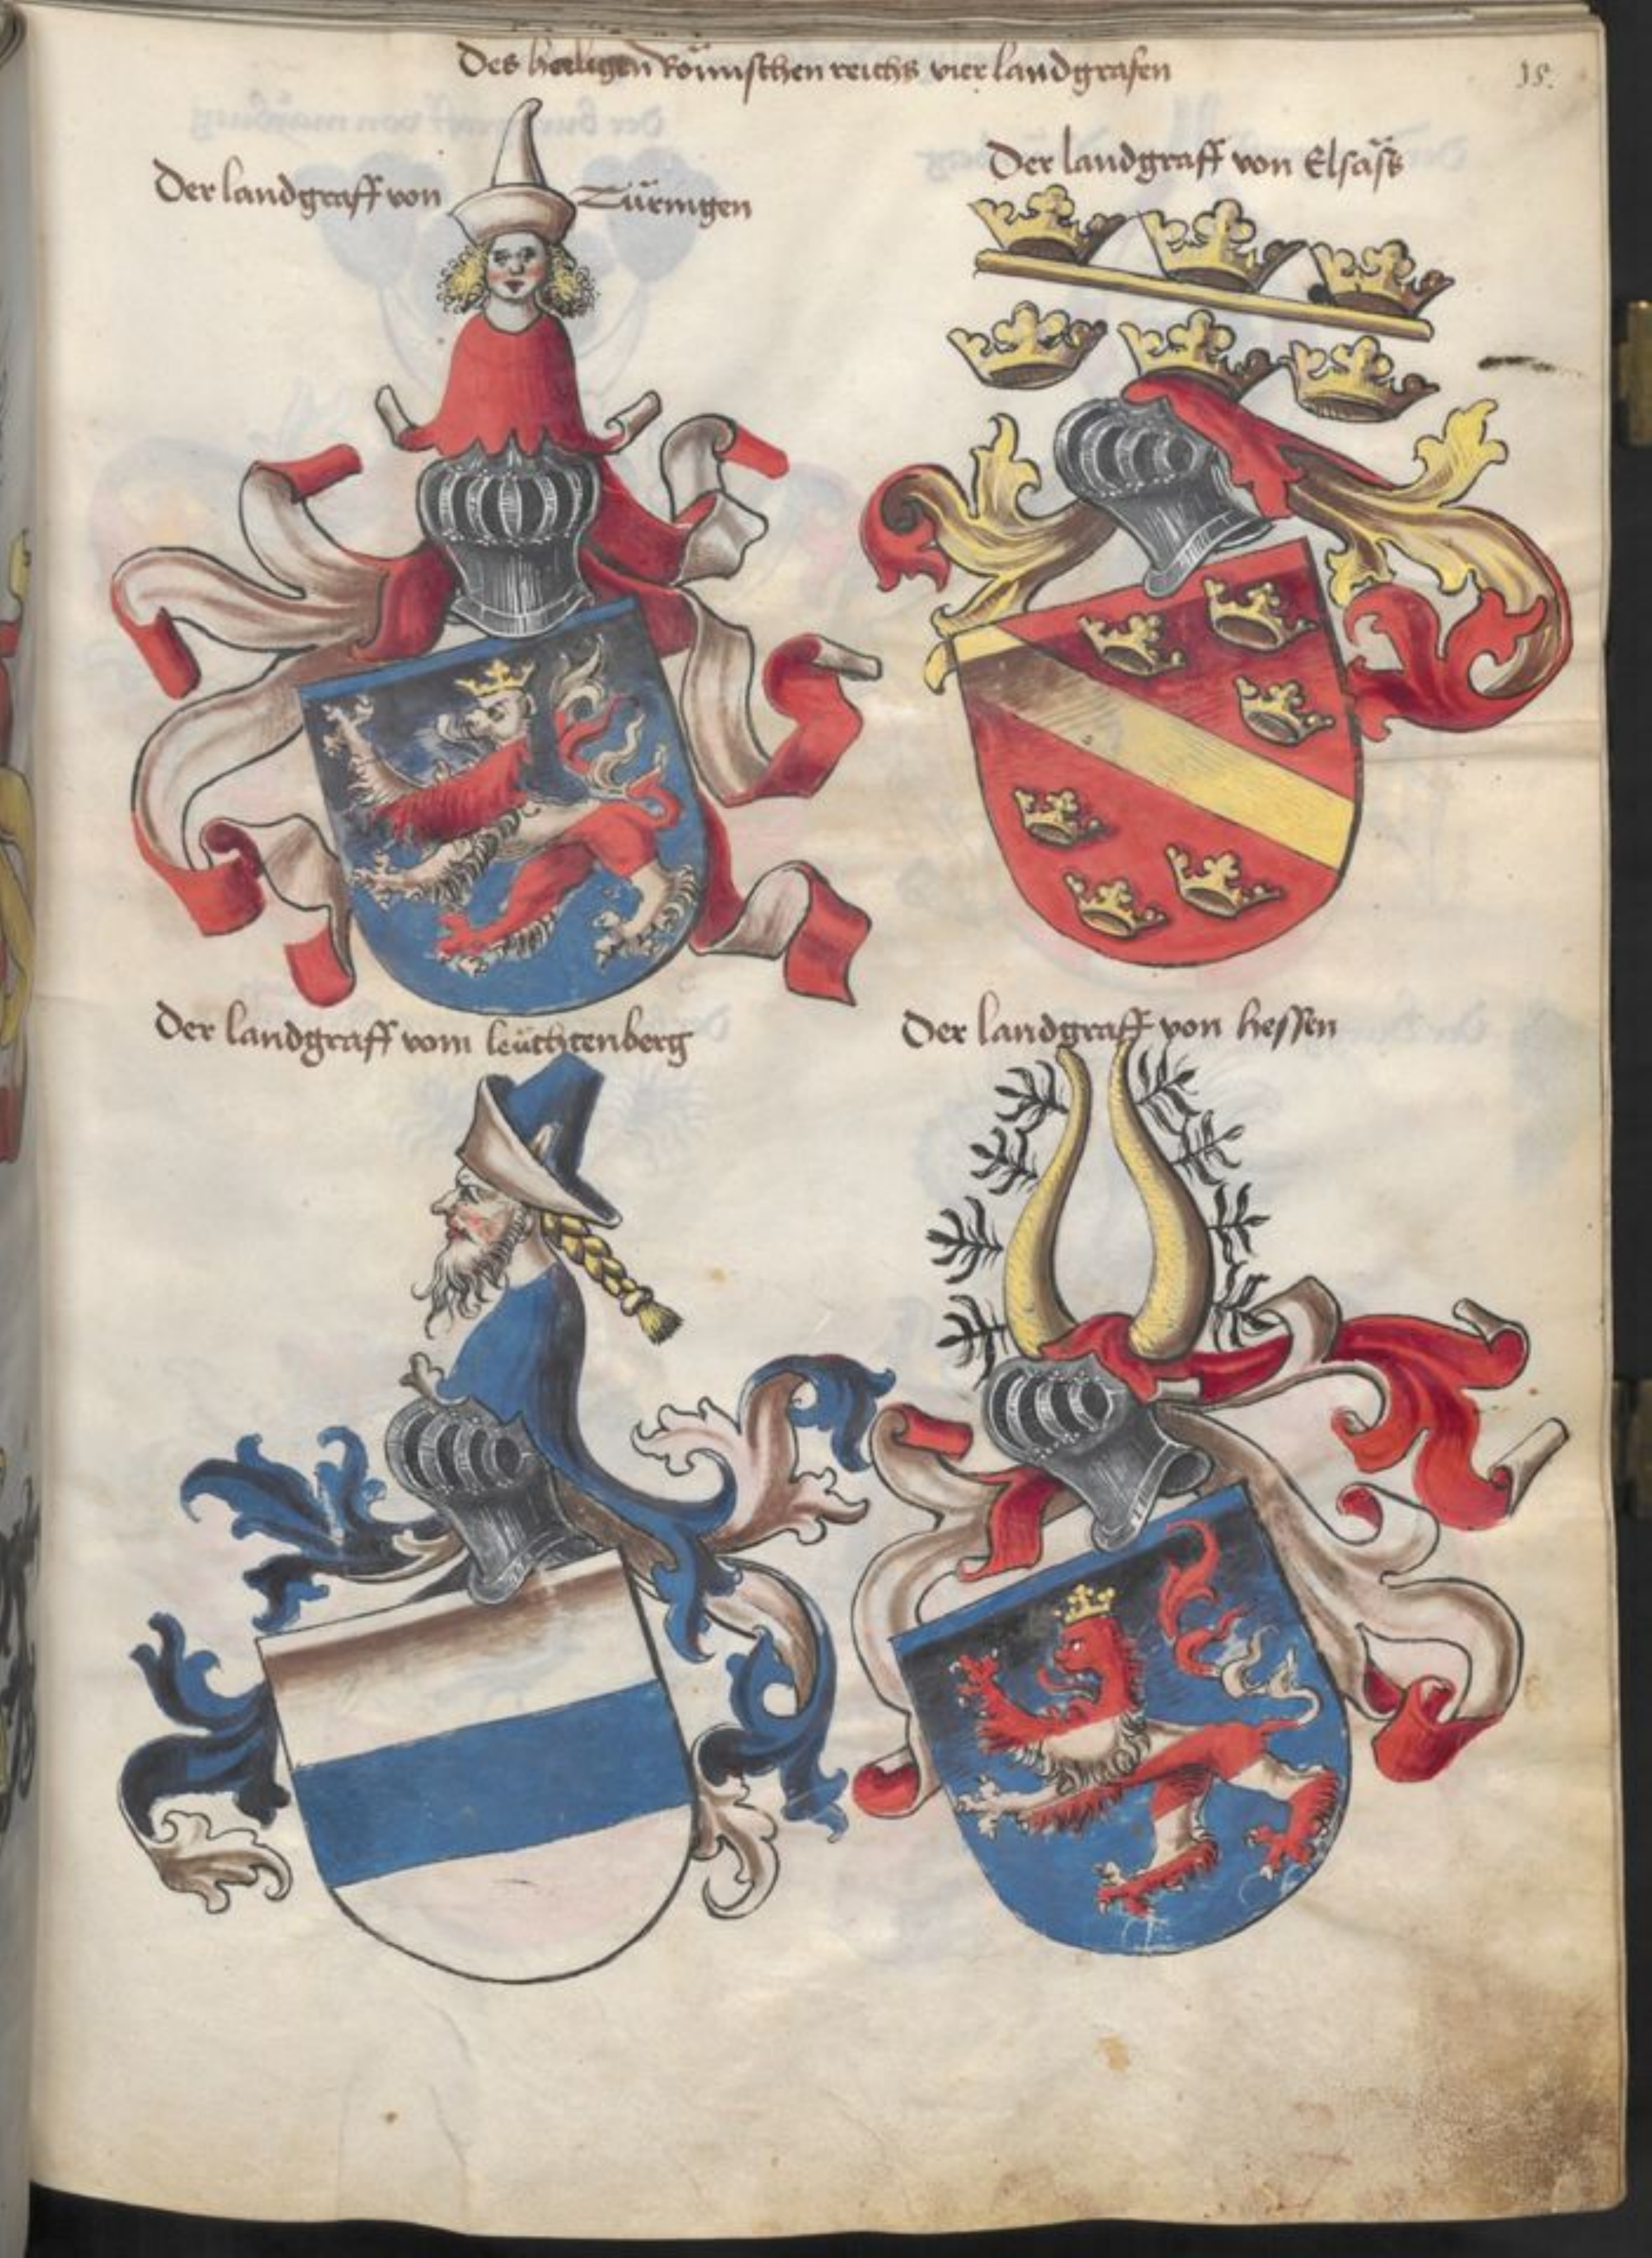 Des heiligen Römischen reichs vier landgrafen
15.
Der landgraff von Türingen
Der landgraff von Elsäss
Der landgraff vom leüchtenberg
Der landgraff von hessen